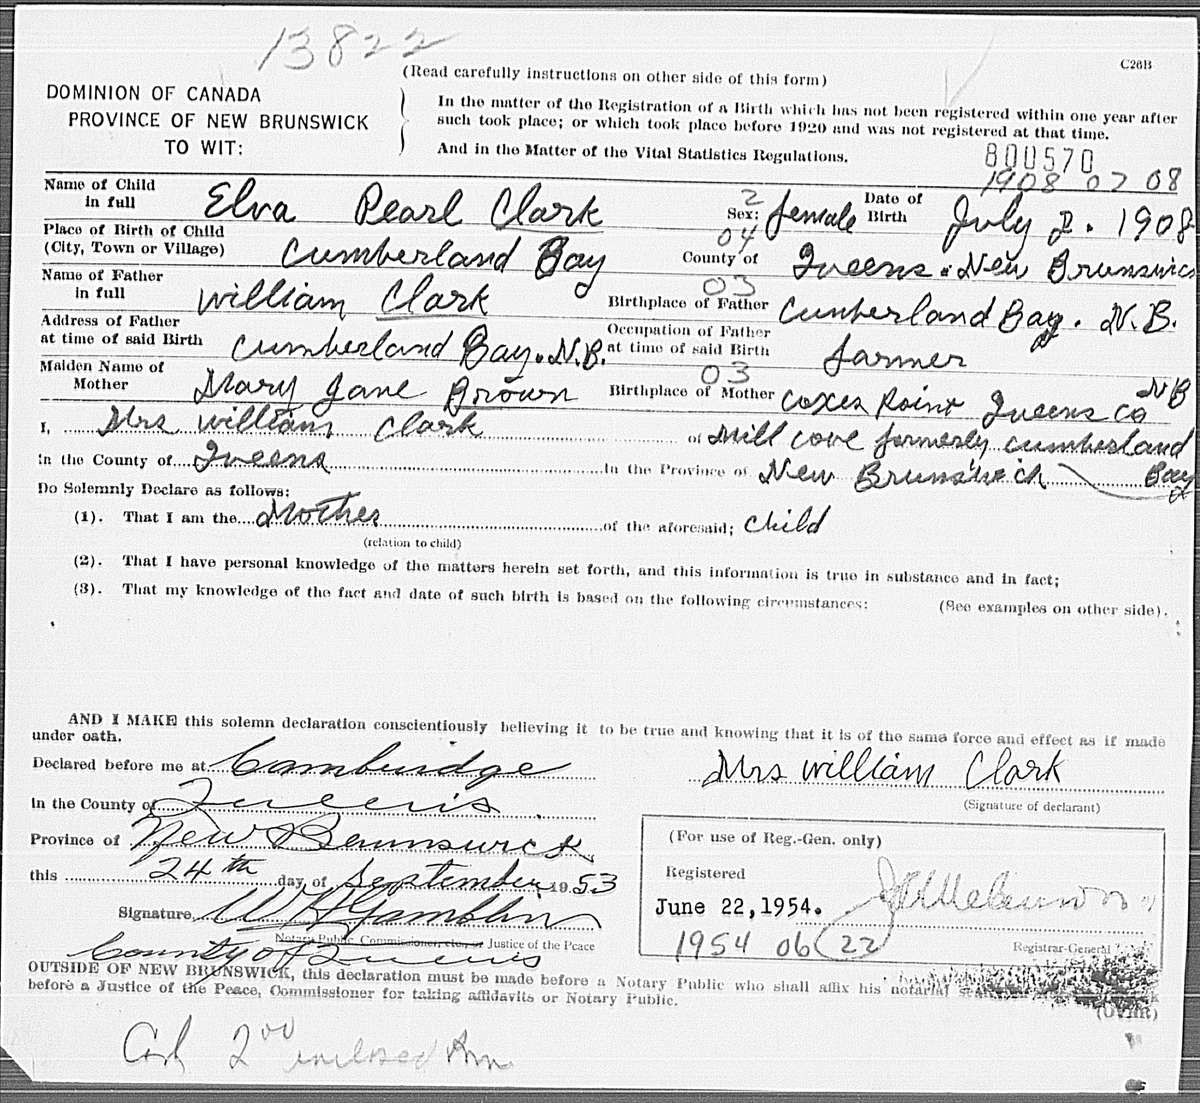 13822
C26B
(Read carefully instructions on other side of this form)
DOMINION OF CANADA
PROVINCE OF NEW BRUNSWICK
TO WIT:
In the matter of the Registration of a Birth which has not been registered within one year after
such took place; or which took place before 1920 and was not registered at that time.
And in the Matter of the Vital Statistics Regulations.
800570
1908 07 08
Name of Child in full Elva Pearl Clark Sex: 2 female Date of Birth July 2. 1908
Place of Birth of Child (City, Town or Village) Cumberland Bay 04 County of Queens. New Brunswick
Name of Father in full William Clark 03 Birthplace of Father Cumberland Bay. N.B.
Address of Father at time of said Birth Cumberland Bay. N.B. Occupation of Father at time of said Birth farmer
Maiden Name of Mother Mary Jane Brown 03 Birthplace of Mother Coxes Point Queens Co NB
I, Mrs William Clark of Mill Cove formerly Cumberland
In the County of Queens In the Province of New Brunswick Bay
Do Solemnly Declare as follows:
(1). That I am the Mother of the aforesaid; Child
(relation to child)
(2). That I have personal knowledge of the matters herein set forth, and this information is true in substance and in fact;
(3). That my knowledge of the fact and date of such birth is based on the following circumstances: (See examples on other side).
AND I MAKE this solemn declaration conscientiously believing it to be true and knowing that it is of the same force and effect as if made
under oath.
Declared before me at Cambridge
Mrs William Clark
(Signature of declarant)
In the County of Queens
Province of New Brunswick
this 24th day of September 1953
Signature, W H Gamblin
Notary Public, Commissioner, etc., or Justice of the Peace
County of Queens
(For use of Reg.-Gen. only)
Registered
June 22, 1954.
1954 06 22
Registrar-General
OUTSIDE OF NEW BRUNSWICK, this declaration must be made before a Notary Public who shall affix his notarial
before a Justice of the Peace, Commissioner for taking affidavits or Notary Public.
(OVER)
2 00 enclosed